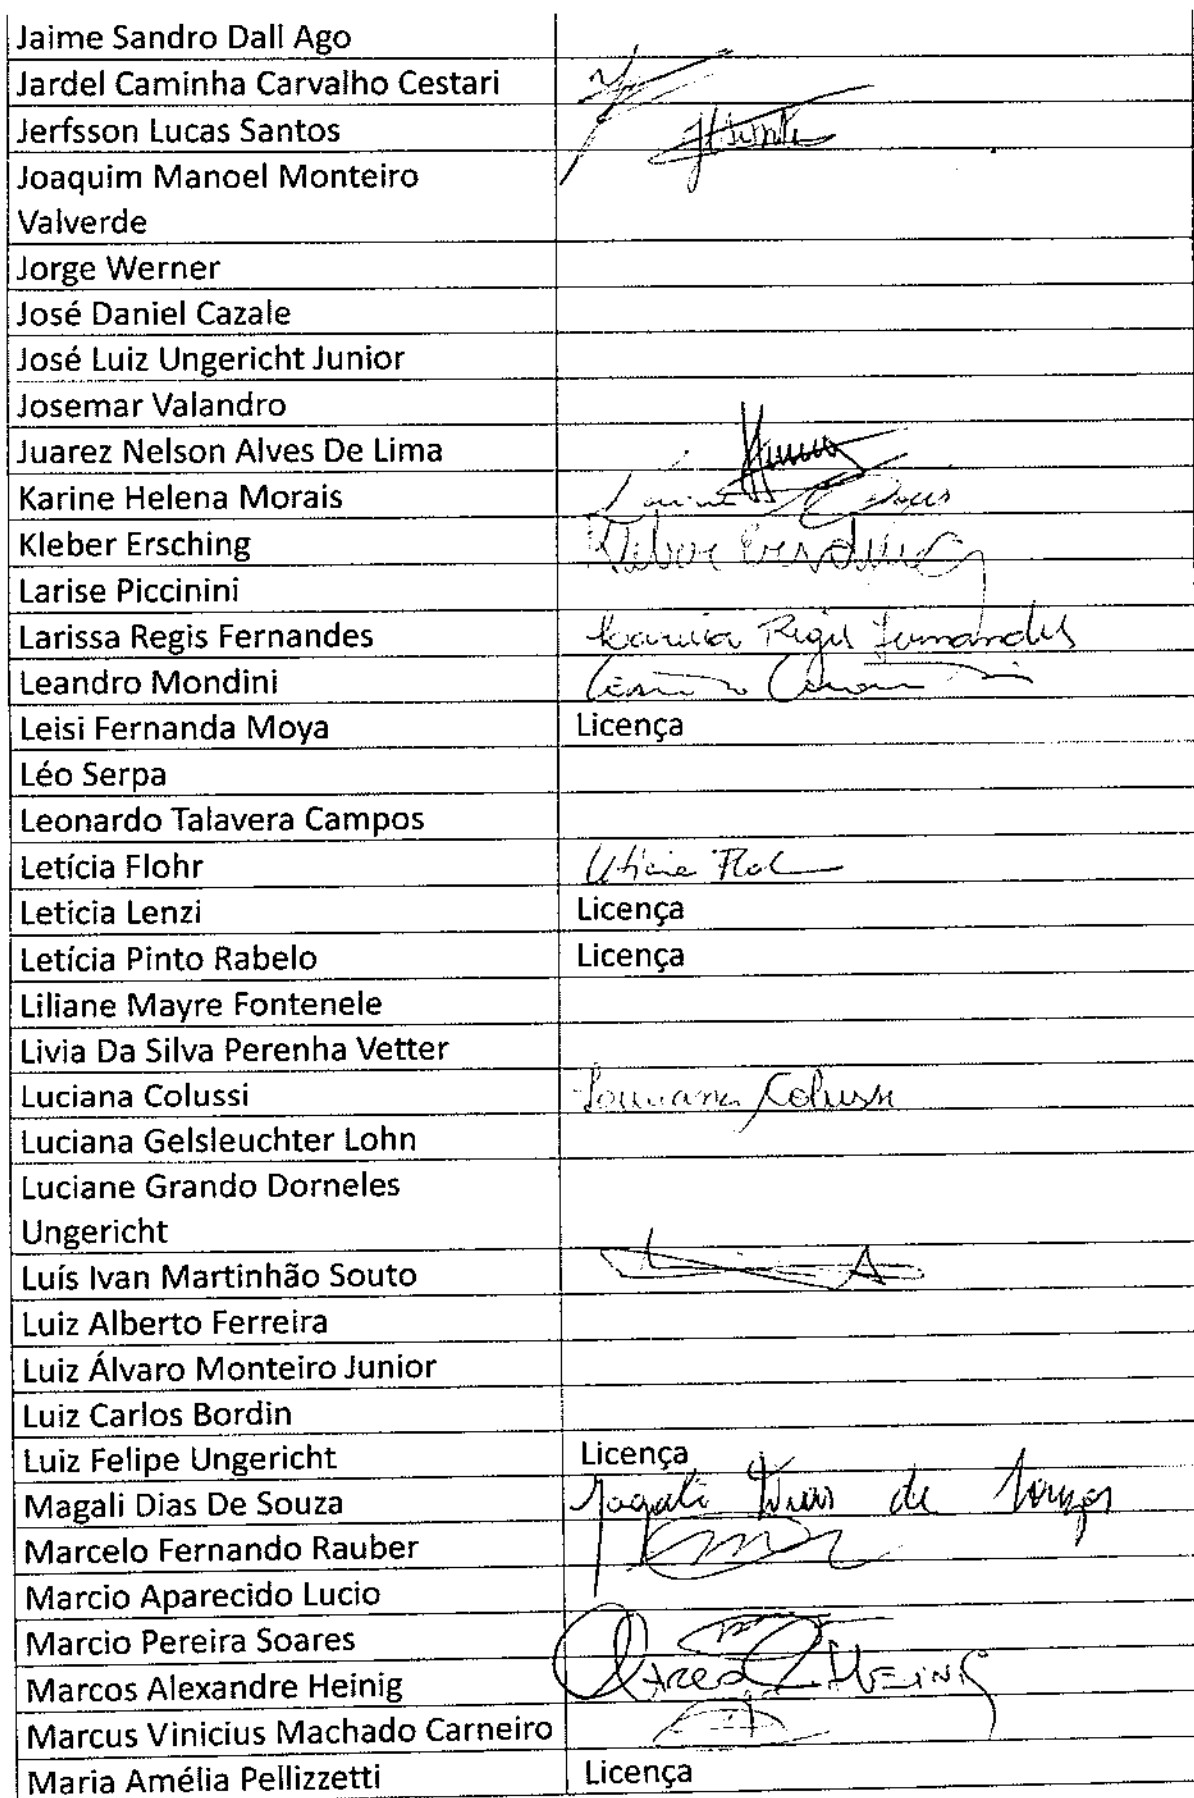 Jaime Sandro Dall Ago
Jardel Caminha Carvalho Cestari
Jerfsson Lucas Santos
Joaquim Manoel Monteiro
Valverde
Jorge Werner
José Daniel Cazale
José Luiz Ungericht Junior
Josemar Valandro
Juarez Nelson Alves De Lima
Karine Helena Morais
Kleber Ersching
Larise Piccinini
Larissa Regis Fernandes Larissa Regis Fernandes
Leandro Mondini
Leisi Fernanda Moya Licença
Léo Serpa
Leonardo Talavera Campos
Letícia Flohr
Leticia Lenzi Licença
Letícia Pinto Rabelo Licença
Liliane Mayre Fontenele
Livia Da Silva Perenha Vetter
Luciana Colussi Luciana Colussi
Luciana Gelsleuchter Lohn
Luciane Grando Dorneles
Ungericht
Luís Ivan Martinhão Souto
Luiz Alberto Ferreira
Luiz Álvaro Monteiro Junior
Luiz Carlos Bordin
Luiz Felipe Ungericht Licença
Magali Dias De Souza Magali Dias de Souza
Marcelo Fernando Rauber
Marcio Aparecido Lucio
Marcio Pereira Soares
Marcos Alexandre Heinig
Marcus Vinicius Machado Carneiro
Maria Amélia Pellizzetti Licença